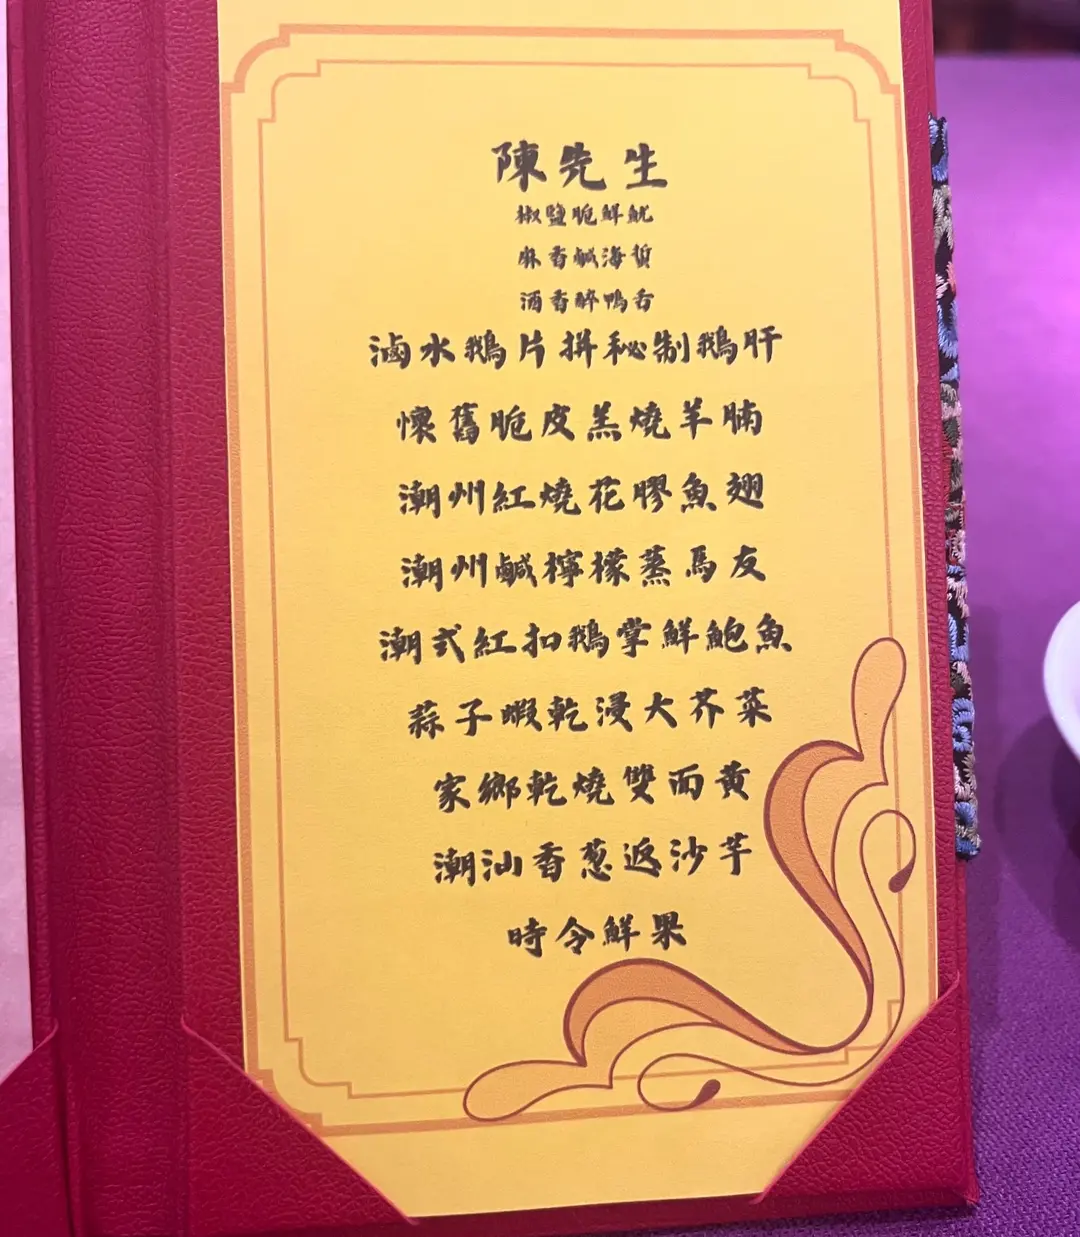 陳先生
椒鹽脆鮮魷
麻香鹹海蜇
酒香醉鴨舌
滷水鵝片拼秘制鵝肝
懷舊脆皮羔燒羊腩
潮州紅燒花膠魚翅
潮州鹹檸檬蒸馬友
潮式紅扣鵝掌鮮鮑魚
蒜子蝦乾浸大芥菜
家鄉乾燒雙面黃
潮汕香葱返沙芋
時令鮮果